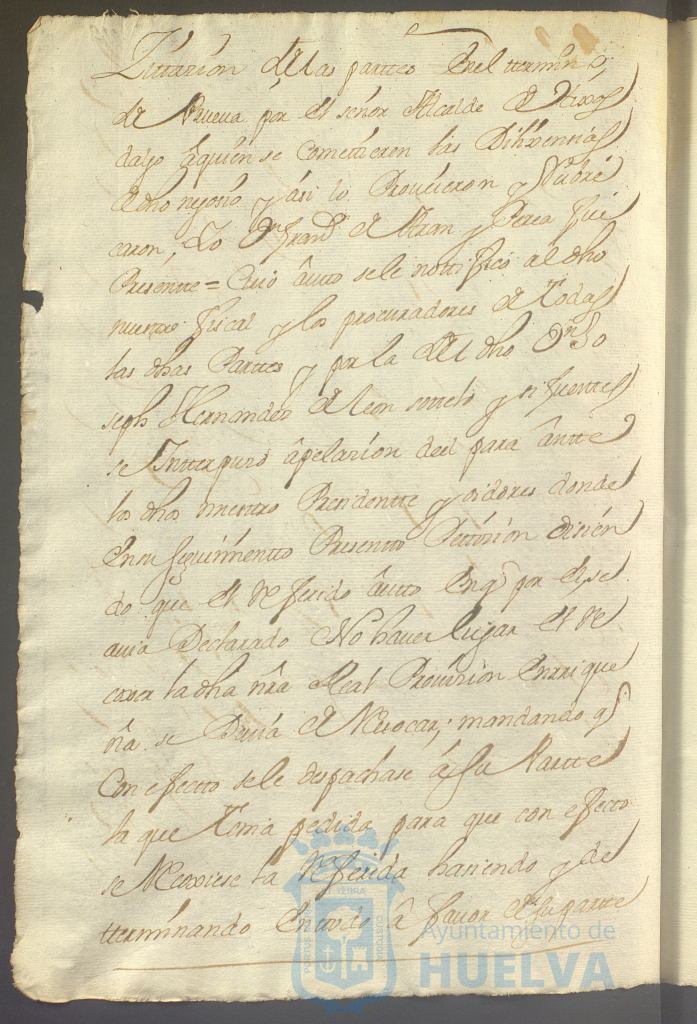 Zitazion de las parttes En el ttermino
de Prueva por el señor Alcalde de Hixos
dalgo â quien se Comettieron las Dilixencias
de dho negozio y âsi lo Proveieron y Rubri
caron, Yo Dn Franco de Teran y Perea fui
Presentte = Cuio âutto se le nottifico al dho
nuestro fiscal y los procuradores de Todas
las dhas Parttes y por la del dho Dn Jo
seph Hernandez de leon sottelo y Zifuenttes
se Intterpuso âpelazion del para ântte
los dhos nuestro Presidentte y oidores donde
En su seguimientto Presentto Pettizion dizien
do que el referido âutto En q por el se
avia Declarado No haver lugar el re
coxer la dha nra Real Provision Enrrique
ña se Devia de Revocar; mandando q
Con efecto se le despachase â su Partte
la que Tenia pedida para que con efecto
se Recoxiese la Referida haziendo y de
tterminando En ttodo â favor de su partte
Ayuntamiento de
HUELVA